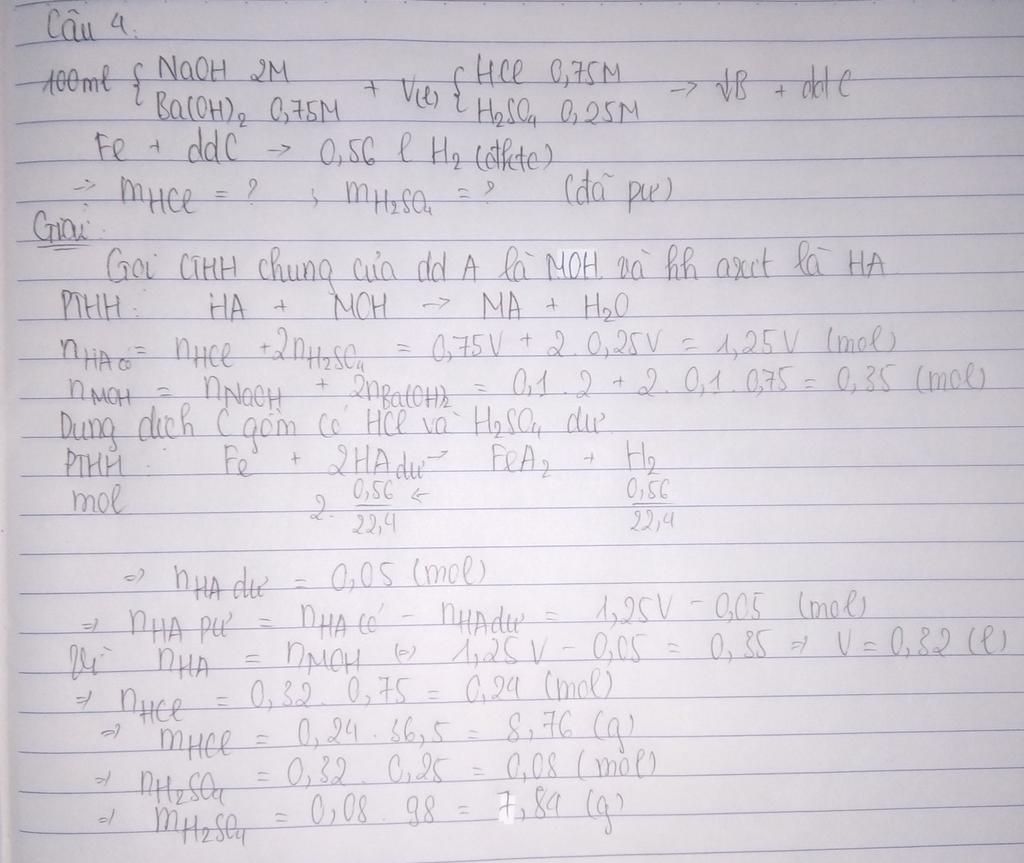 Câu 4.
100ml { NaOH 2M Ba(OH)₂ 0,75M + V(l) { HCl 0,75M H₂SO₄ 0,25M → ↓B + dd C
Fe + ddC → 0,56 l H₂ (đktc)
→ mHCl = ? ; mH₂SO₄ = ? (đã pư)
Giải:
Gọi CTHH chung của dd A là MOH và hh axit là HA
PTHH: HA + MOH → MA + H₂O
nHA có = nHCl + 2nH₂SO₄ = 0,75V + 2. 0,25V = 1,25V (mol)
nMOH = nNaOH + 2nBa(OH)₂ = 0,1 . 2 + 2. 0,1. 0,75 = 0,35 (mol)
Dung dịch C gồm có HCl và H₂SO₄ dư
PTHH: Fe + 2HA dư → FeA₂ + H₂
mol 2. 0,56/22,4 ← 0,56/22,4
⇒ nHA dư = 0,05 (mol)
⇒ nHA pư = nHA có - nHA dư = 1,25V - 0,05 (mol)
Vì nHA = nMOH ⇔ 1,25V - 0,05 = 0,35 ⇒ V = 0,32 (l)
⇒ nHCl = 0,32 . 0,75 = 0,24 (mol)
⇒ mHCl = 0,24 . 36,5 = 8,76 (g)
⇒ nH₂SO₄ = 0,32 . 0,25 = 0,08 (mol)
⇒ mH₂SO₄ = 0,08 . 98 = 7,84 (g)